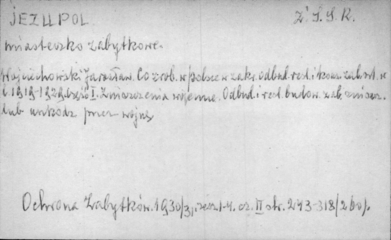 JEZUPOL. Z.S.S.R.
miasteczko zabytkowe.
Wojciechowski Jarosław. Co zrob. w Polsce w zakr. odbud. rest. i kons. zab. szt. w
l. 1919-1929. część I. Zniszczenia wojenne. Odbud. i rest. budow. zab. zniszcz.
lub uszkodz. przez wojnę
Ochrona Zabytków. 1930/31, zesz. 1-4. cz. II str. 273-318/260/.